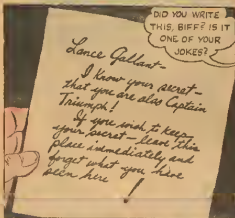 DID YOU WRITE
THIS, BIFF? IS IT
ONE OF YOUR
JOKES?
Lance Gallant-
I know your secret-
that you are also Captain
Triumph!
If you wish to keep
your secret - leave this
place immediately and
forget what you have
seen here!